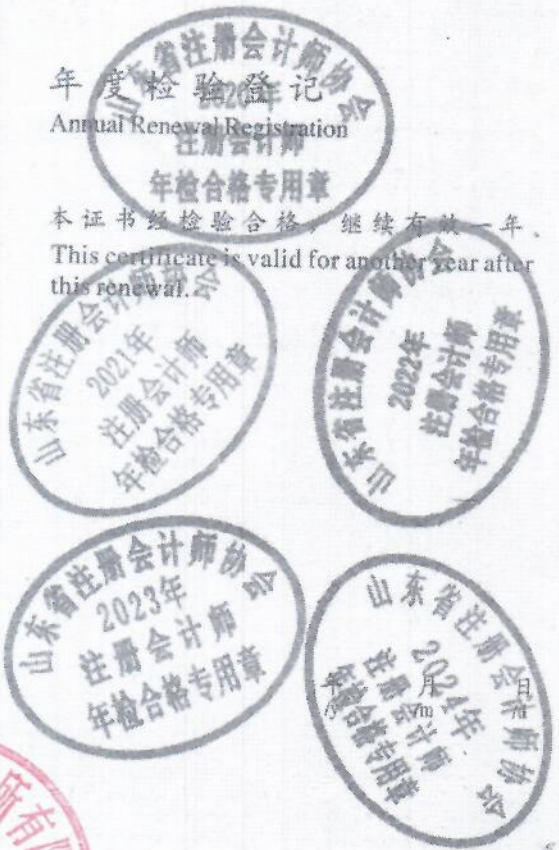 年度检验登记
Annual Renewal Registration
山东省注册会计师协会
2020年
注册会计师
年检合格专用章
本证书经检验合格，继续有效一年。
This certificate is valid for another year after
this renewal.
山东省注册会计师协会
2021年
注册会计师
年检合格专用章
山东省注册会计师协会
2022年
注册会计师
年检合格专用章
山东省注册会计师协会
2023年
注册会计师
年检合格专用章
山东省注册会计师协会
2024年
注册会计师
年检合格专用章
年 月 日
/y /m /d
所有限